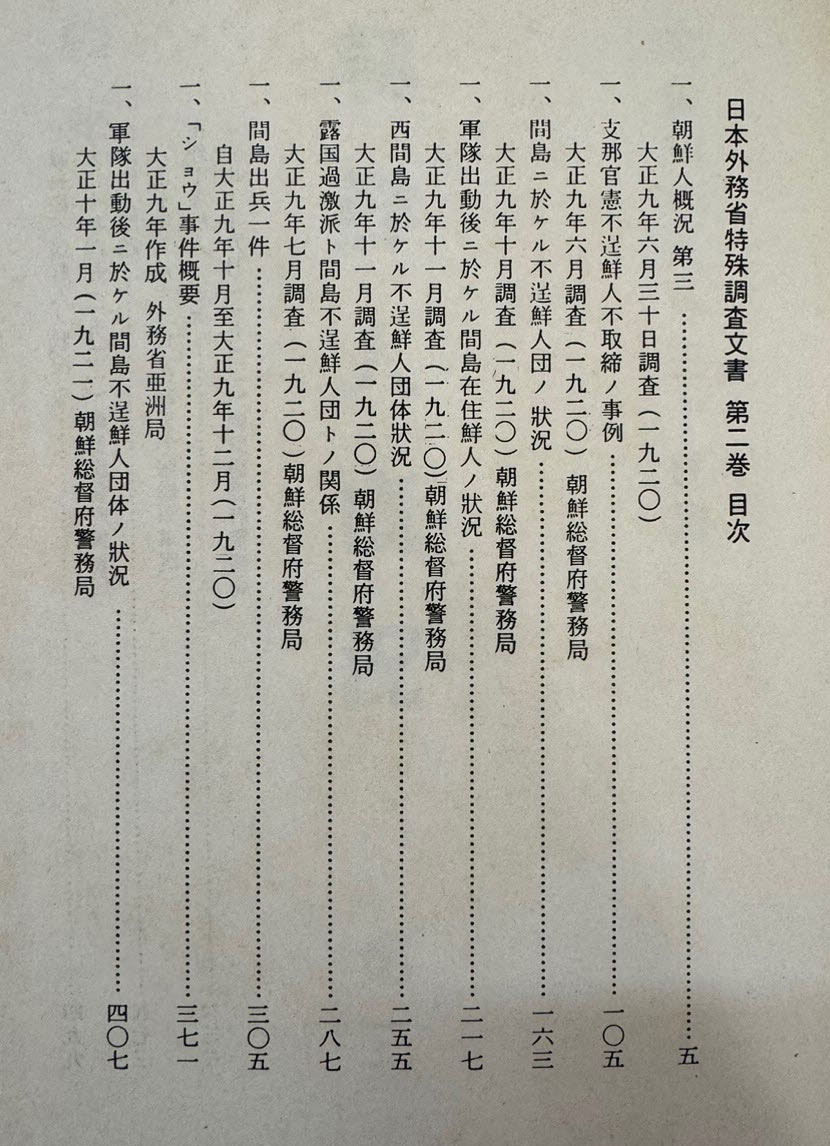 日本外務省特殊調査文書 第二巻 目次
一、朝鮮人概況 第三 …… 五
大正九年六月三十日調査(一九二〇)
一、支那官憲不逞鮮人不取締ノ事例 …… 一〇五
大正九年六月調査(一九二〇) 朝鮮総督府警務局
一、間島ニ於ケル不逞鮮人団ノ狀況 …… 一六三
大正九年十月調査(一九二〇)朝鮮総督府警務局
一、軍隊出動後ニ於ケル間島在住鮮人ノ狀況 …… 二一七
大正九年十一月調査(一九二〇)朝鮮総督府警務局
一、西間島ニ於ケル不逞鮮人団体狀況 …… 二五五
大正九年十一月調査(一九二〇)朝鮮総督府警務局
一、露国過激派ト間島不逞鮮人団トノ関係 …… 二八七
大正九年七月調査(一九二〇)朝鮮総督府警務局
一、間島出兵一件 …… 三〇五
自大正九年十月至大正九年十二月(一九二〇)
一、「ショウ」事件概要 …… 三七一
大正九年作成 外務省亜洲局
一、軍隊出動後ニ於ケル間島不逞鮮人団体ノ狀況 …… 四〇七
大正十年一月(一九二一)朝鮮総督府警務局